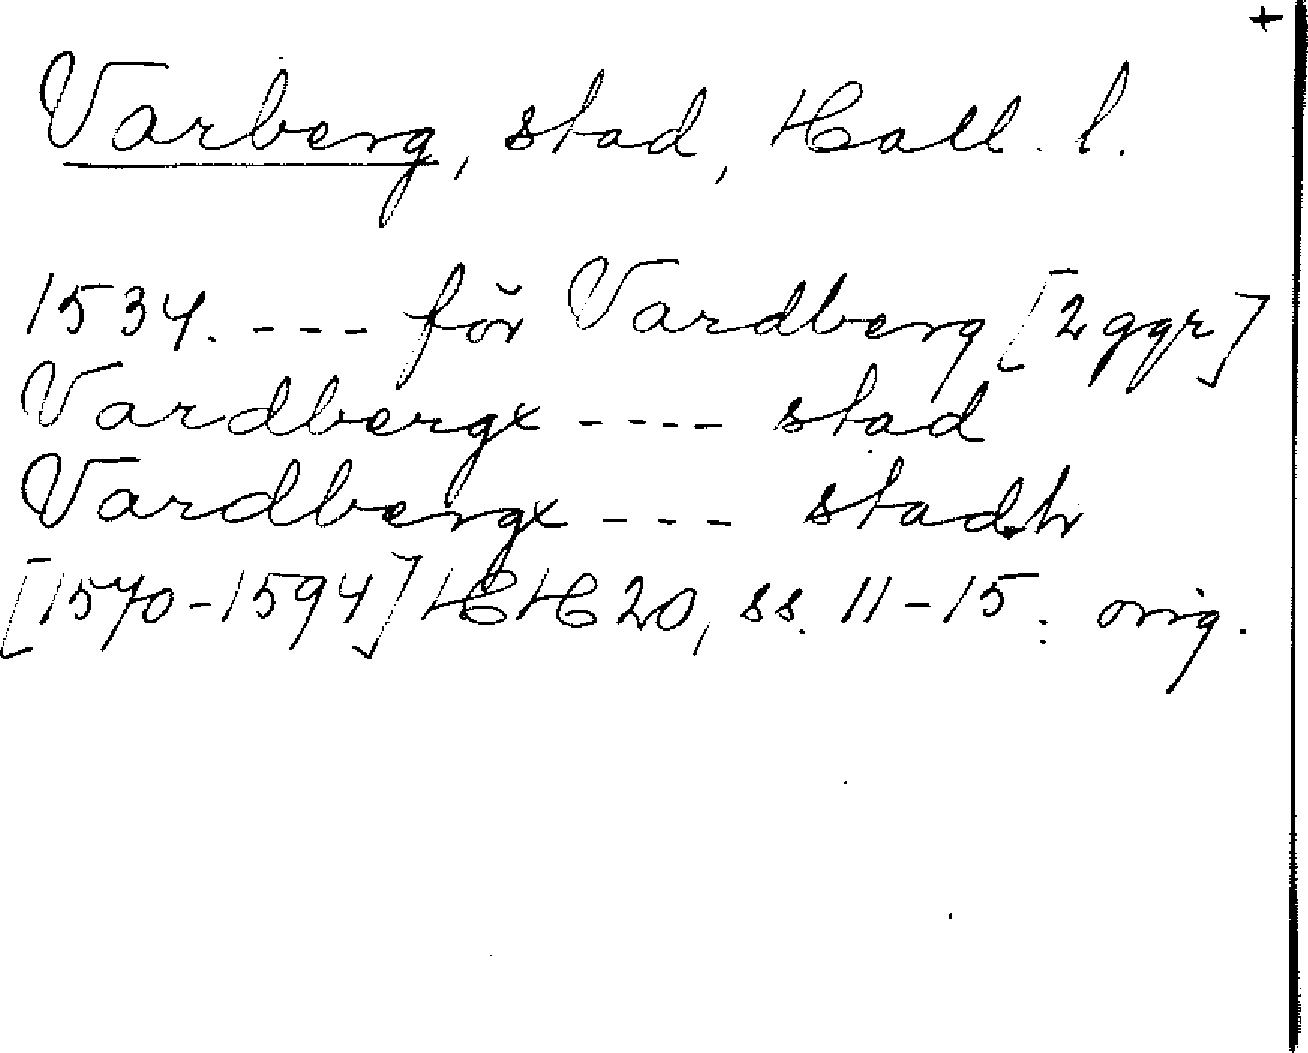 +
Varberg, stad, Hall. l.
1534. --- för Vardberg [2 ggr]
Vardbergx ---- stad
Vardbergx --- stadh
[1570-1594] HH 20, ss. 11-15: orig.